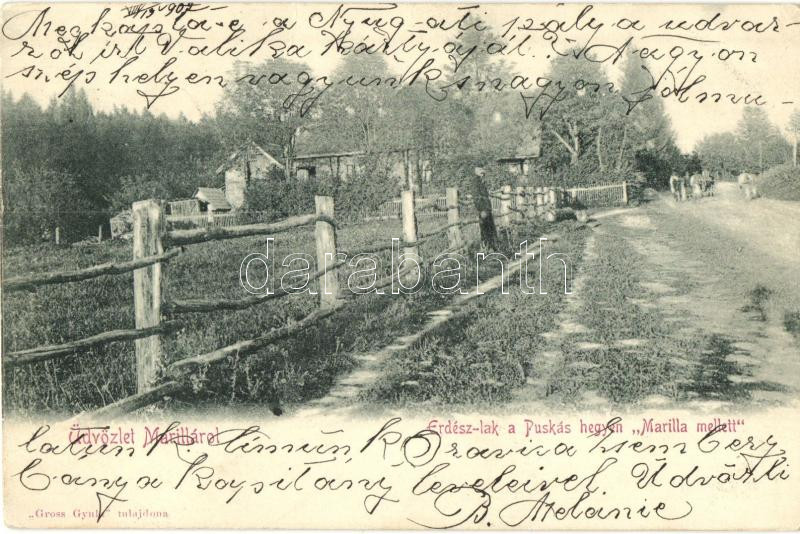 VII/15 907
Megkapta-e a Nyug-ati pálya udvar-
ról írt Valika kártyáját? Nagyon
szép helyen vagyunk nagyon
darabanth
Üdvözlet Marilláról
Erdész-lak a Puskás hegyen „Marilla mellett"
Oravica
Bánya kapitány leveleivel Üdvözli
B. Melanie
„Gross Gyula" tulajdona